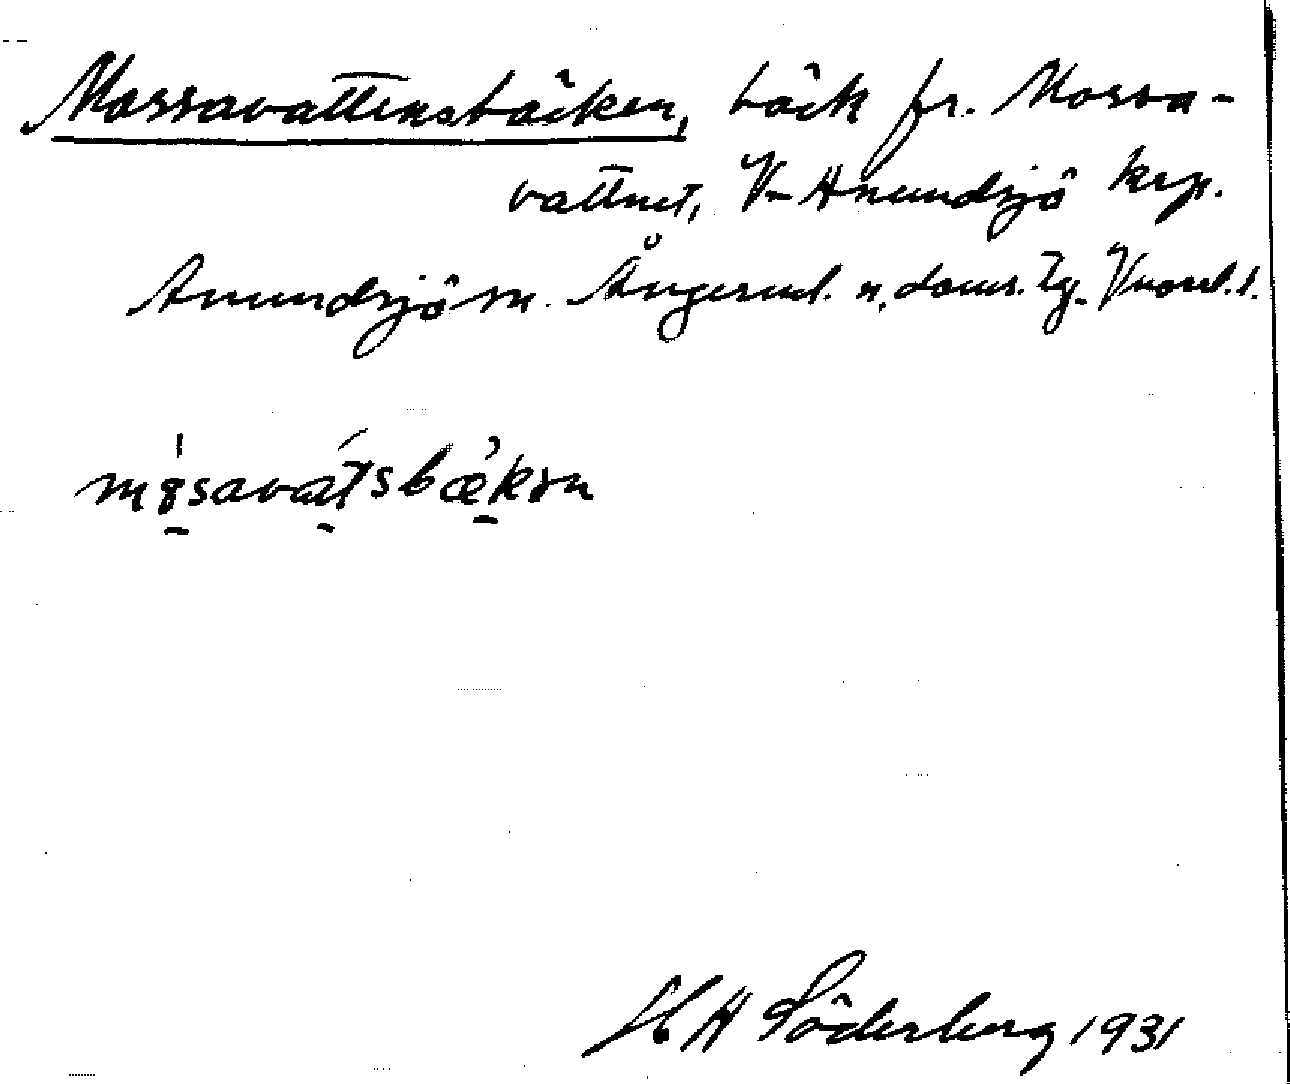 Mossavattensbäcken, bäck fr. Mossa-
vattnet, V. Anundsjö krp.
Anundsjö sn. Ångerml. n. doms. tg. Västernorrl. l.
mo̤savat̤sbæ̤kən
H A Söderberg 1931